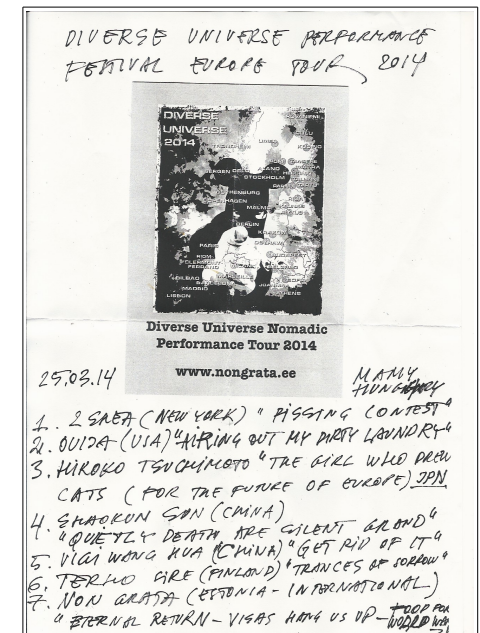 DIVERSE UNIVERSE PERFORMANCE
FESTIVAL EUROPE TOUR 2014
DIVERSE
UNIVERSE
2014
OULU
TRONDHEIM
BERGEN OSLO
STOCKHOLM
MALMO
BERLIN
KRAKOW
PARIS
CLERMONT
FERRAND
BUDAPEST
BILBAO
MADRID
LISBON
ATHENS
Diverse Universe Nomadic
Performance Tour 2014
www.nongrata.ee
25.03.14
MAMÜ
HUNGARY
1. 2 GREA (NEW YORK) "PISSING CONTEST"
2. OUIJA (USA) "AIRING OUT MY DIRTY LAUNDRY"
3. HIROKO TSUCHIMOTO "THE GIRL WHO DREW
CATS (FOR THE FUTURE OF EUROPE) JPN
4. SHAOKUN SUN (CHINA)
"QUIETLY DEATH ARE SILENT GRAND"
5. VIGI WANG HUA (CHINA) "GET RID OF IT"
6. TERHO SIRE (FINLAND) "TRANCES OF SORROW"
7. NON GRATA (ESTONIA - INTERNATIONAL)
"ETERNAL RETURN - VISAS HANG US UP - FOOD FOR